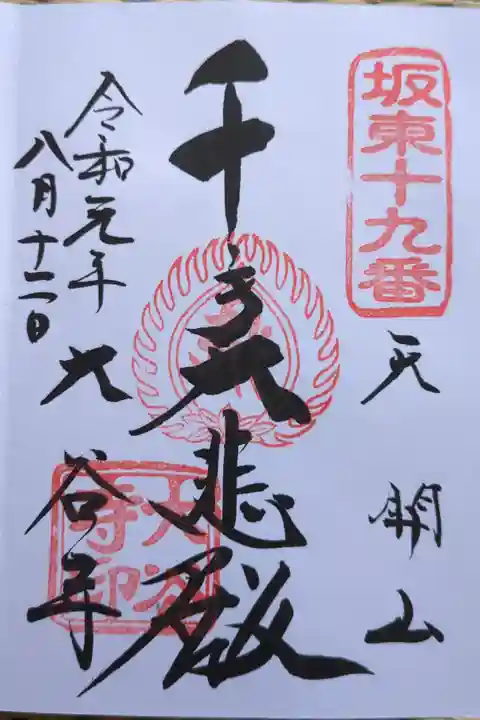 坂東十九番
天開山
千手大悲殿
大谷寺
大谷寺印
令和元年
八月十二日